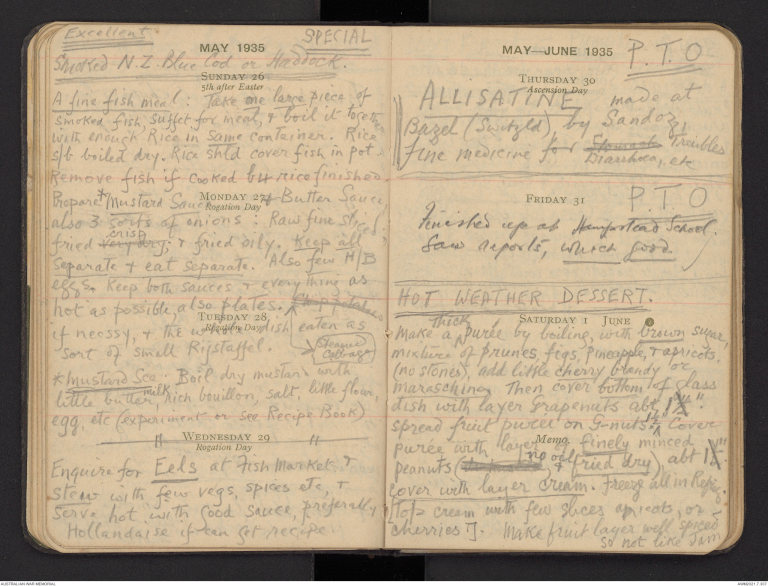 Excellent. SPECIAL
MAY 1935
Smoked N.Z. Blue Cod or Haddock.
SUNDAY 26
5th after Easter
A fine fish meal: Take one large piece of
smoked fish, suffct for meal, & boil it together
with enough Rice in same container. Rice
s/b boiled dry. Rice shld cover fish in pot.
Remove fish if cooked b4 rice finished
Prepare * Mustard Sauce & Butter Sauce,
MONDAY 27
Rogation Day
also 3 sorts of onions: Raw fine sliced
fried very dry, crisp & fried oily. Keep all
separate & eat separate. Also few H/B
eggs. Keep both sauces & everything as
hot as possible, also plates. Chop potatoes
TUESDAY 28
Rogation Day
if necssy, & the whole dish eaten as
sort of small Rijstaffel.
Steamed
Cabbage
* Mustard Sce: Boil dry mustard with
little butter, milk, rich bouillon, salt, little flour,
egg, etc (experiment or see Recipe Book)
" "
WEDNESDAY 29
Rogation Day
Enquire for Eels at Fish Market &
stew with few vegs, spices etc, &
serve hot with good sauce, preferably
Hollandaise if can get recipe.
MAY—JUNE 1935
P.T.O
THURSDAY 30
Ascension Day
ALLISATINE made at
Bazel (Switzld) by Sandoz,
fine medicine for Stomach troubles
Diarrhoea, etc
FRIDAY 31
P T O
Finished up at Hampstead School.
Saw reports, which good.
HOT WEATHER DESSERT.
SATURDAY 1 JUNE
Make a thick puree by boiling, with brown sugar,
mixture of prunes, figs, pineapple, & apricots,
(no stones), add little cherry brandy or
maraschino. Then cover bottom of glass
dish with layer Grapenuts abt 1½".
spread fruit puree on G-nuts 1½". Cover
Memo.
puree with layer finely minced
peanuts (no oil & fried dry), abt 1½"
cover with layer cream. Freeze all in Refrig.
[Top cream with few slices apricots, or
cherries]. Make fruit layer well spiced
so not like Jam
AUSTRALIAN WAR MEMORIAL